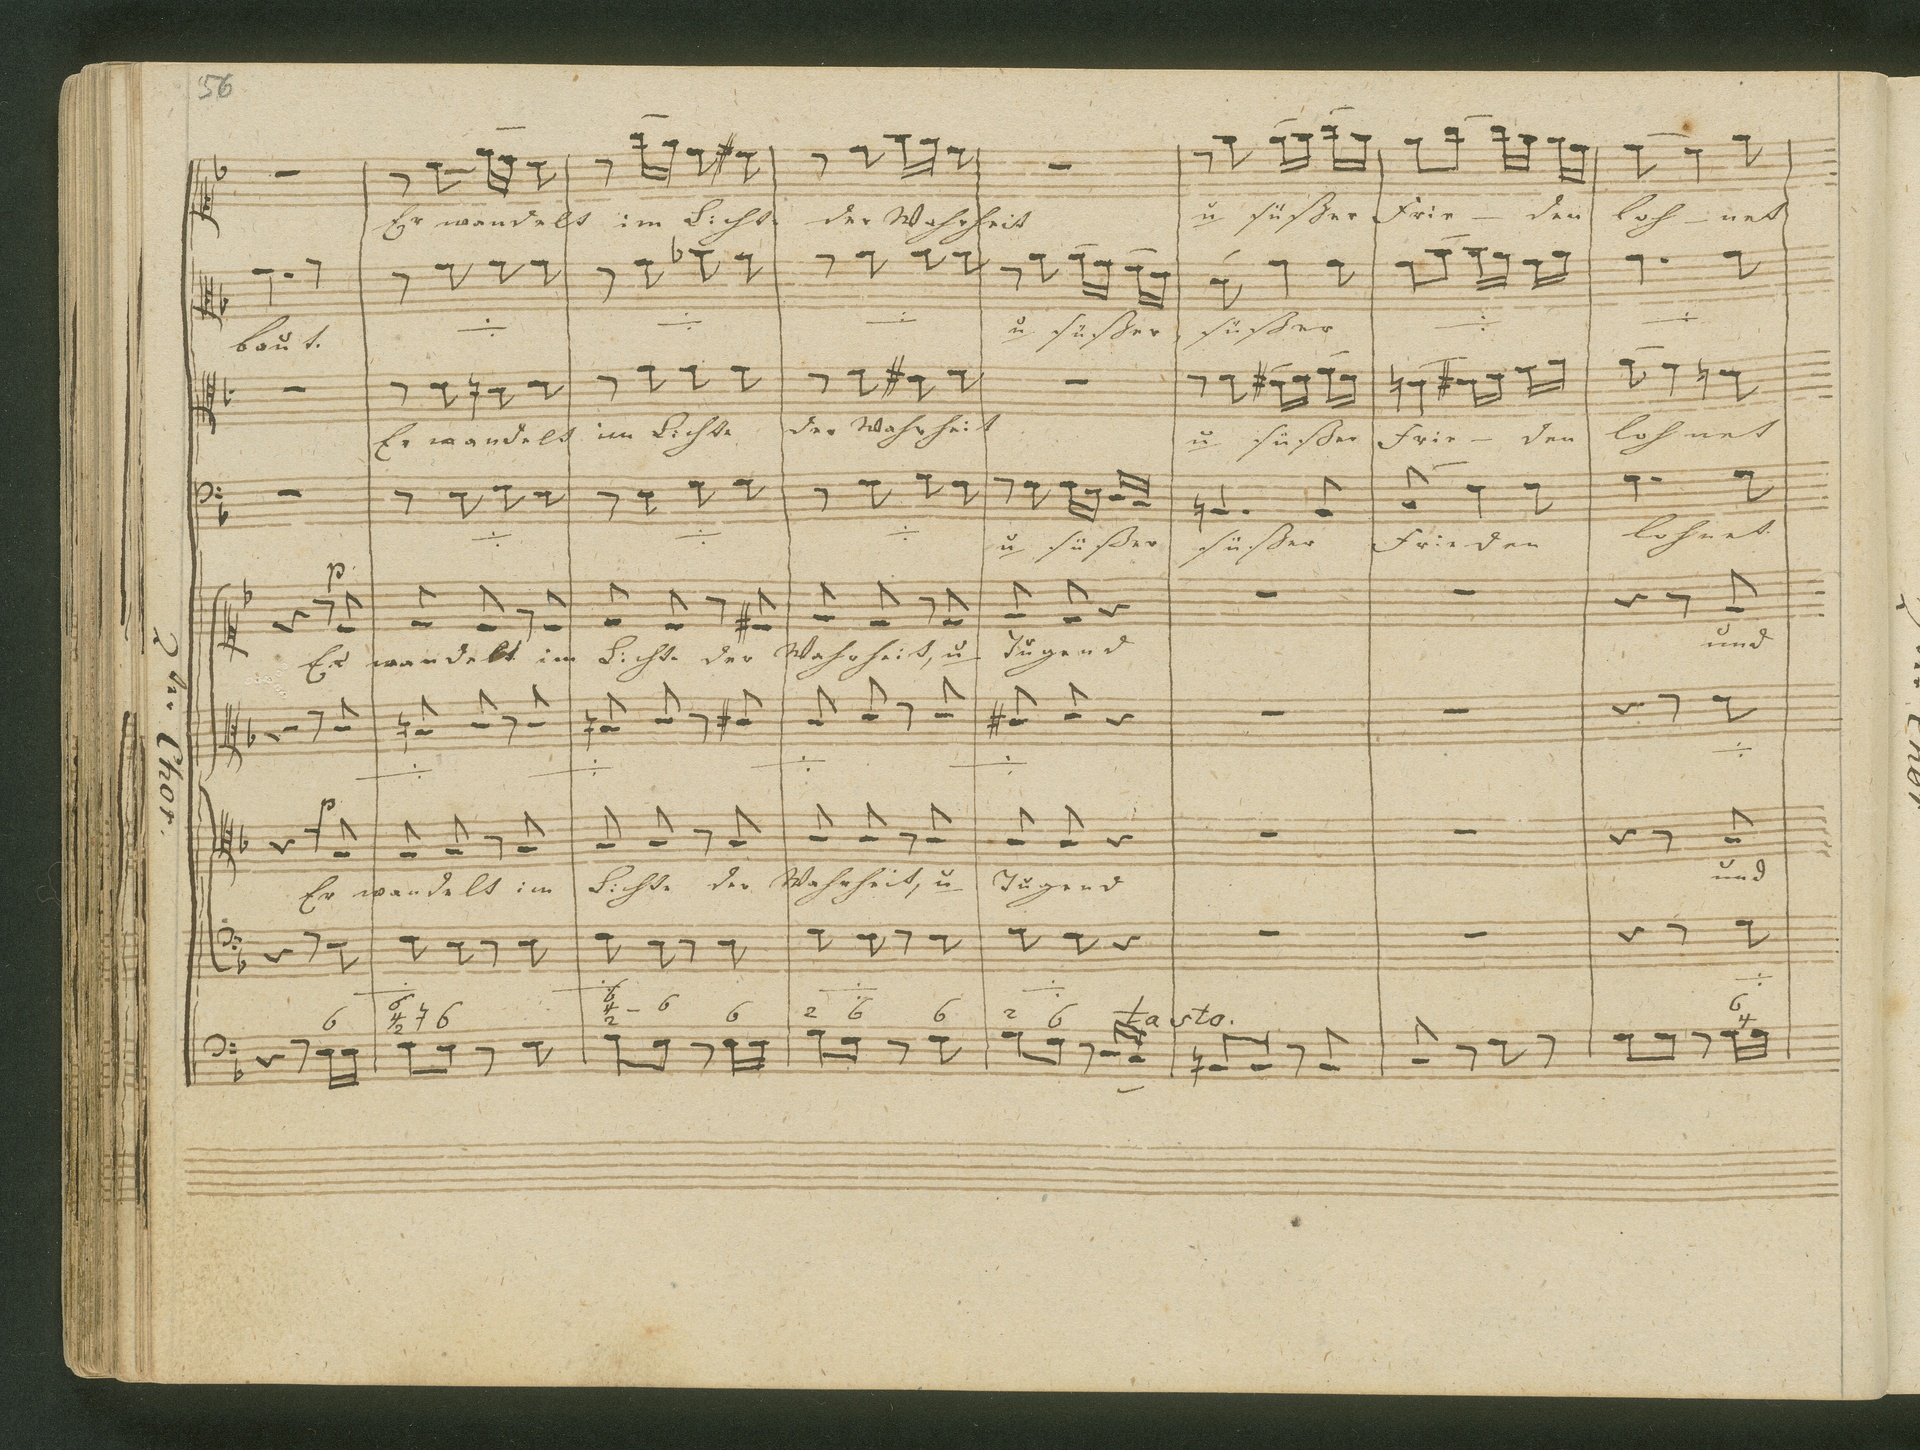 56
Er wandelt im Lichte der Wahrheit u süßer Frie — den loh — net
baut. u süßer, süßer
Er wandelt im Lichte der Wahrheit u süßer Frie — den lohnet
u süßer süßer Frieden lohnet
p.
Er wandelt im Lichte der Wahrheit, u Tugend und
2ter Chor.
p
Er wandelt im Lichte der Wahrheit, u Tugend und
6 6 4 2 7 6 6 4 2 – 6 6 2 6 6 2 6 tasto. 6 4